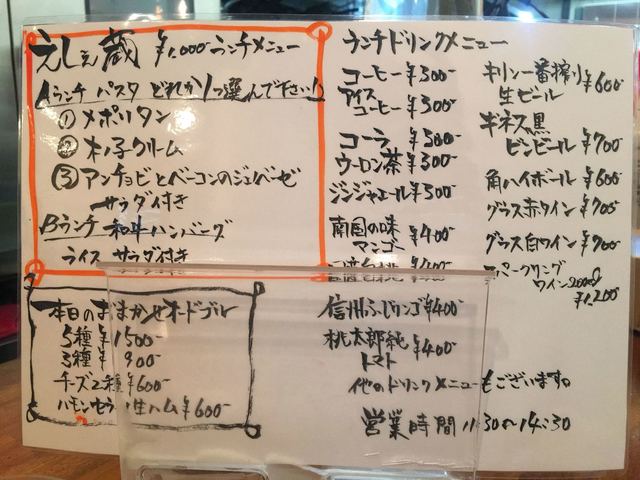 えしぇ蔵 ¥1,000-ランチメニュー
Aランチ パスタ どれか1つ選んで下さい!
① メポリタン
② 木ノ子クリーム
③ アンチョビとベーコンのジェノベーゼ
サラダ付き
Bランチ 和牛ハンバーグ
ライス サラダ付き
本日のおまかせオードブル
5種 ¥1500-
3種 ¥900-
チーズ2種 ¥600-
ハモンセラ 生ハム ¥600-
ランチドリンクメニュー
コーヒー ¥300-
アイスコーヒー ¥300-
コーラ ¥300-
ウーロン茶 ¥300-
ジンジャエール ¥300-
南国の味
マンゴー ¥400-
¥400-
信州ふじリンゴ ¥400-
桃太郎純
トマト ¥400-
他のドリンクメニューもございます。
営業時間 11:30〜14:30
キリン一番搾り
生ビール ¥600-
ギネス黒
ビンビール ¥700-
角ハイボール ¥600-
グラス赤ワイン ¥700-
グラス白ワイン ¥700-
スパークリング
ワイン200ml
¥1,200-